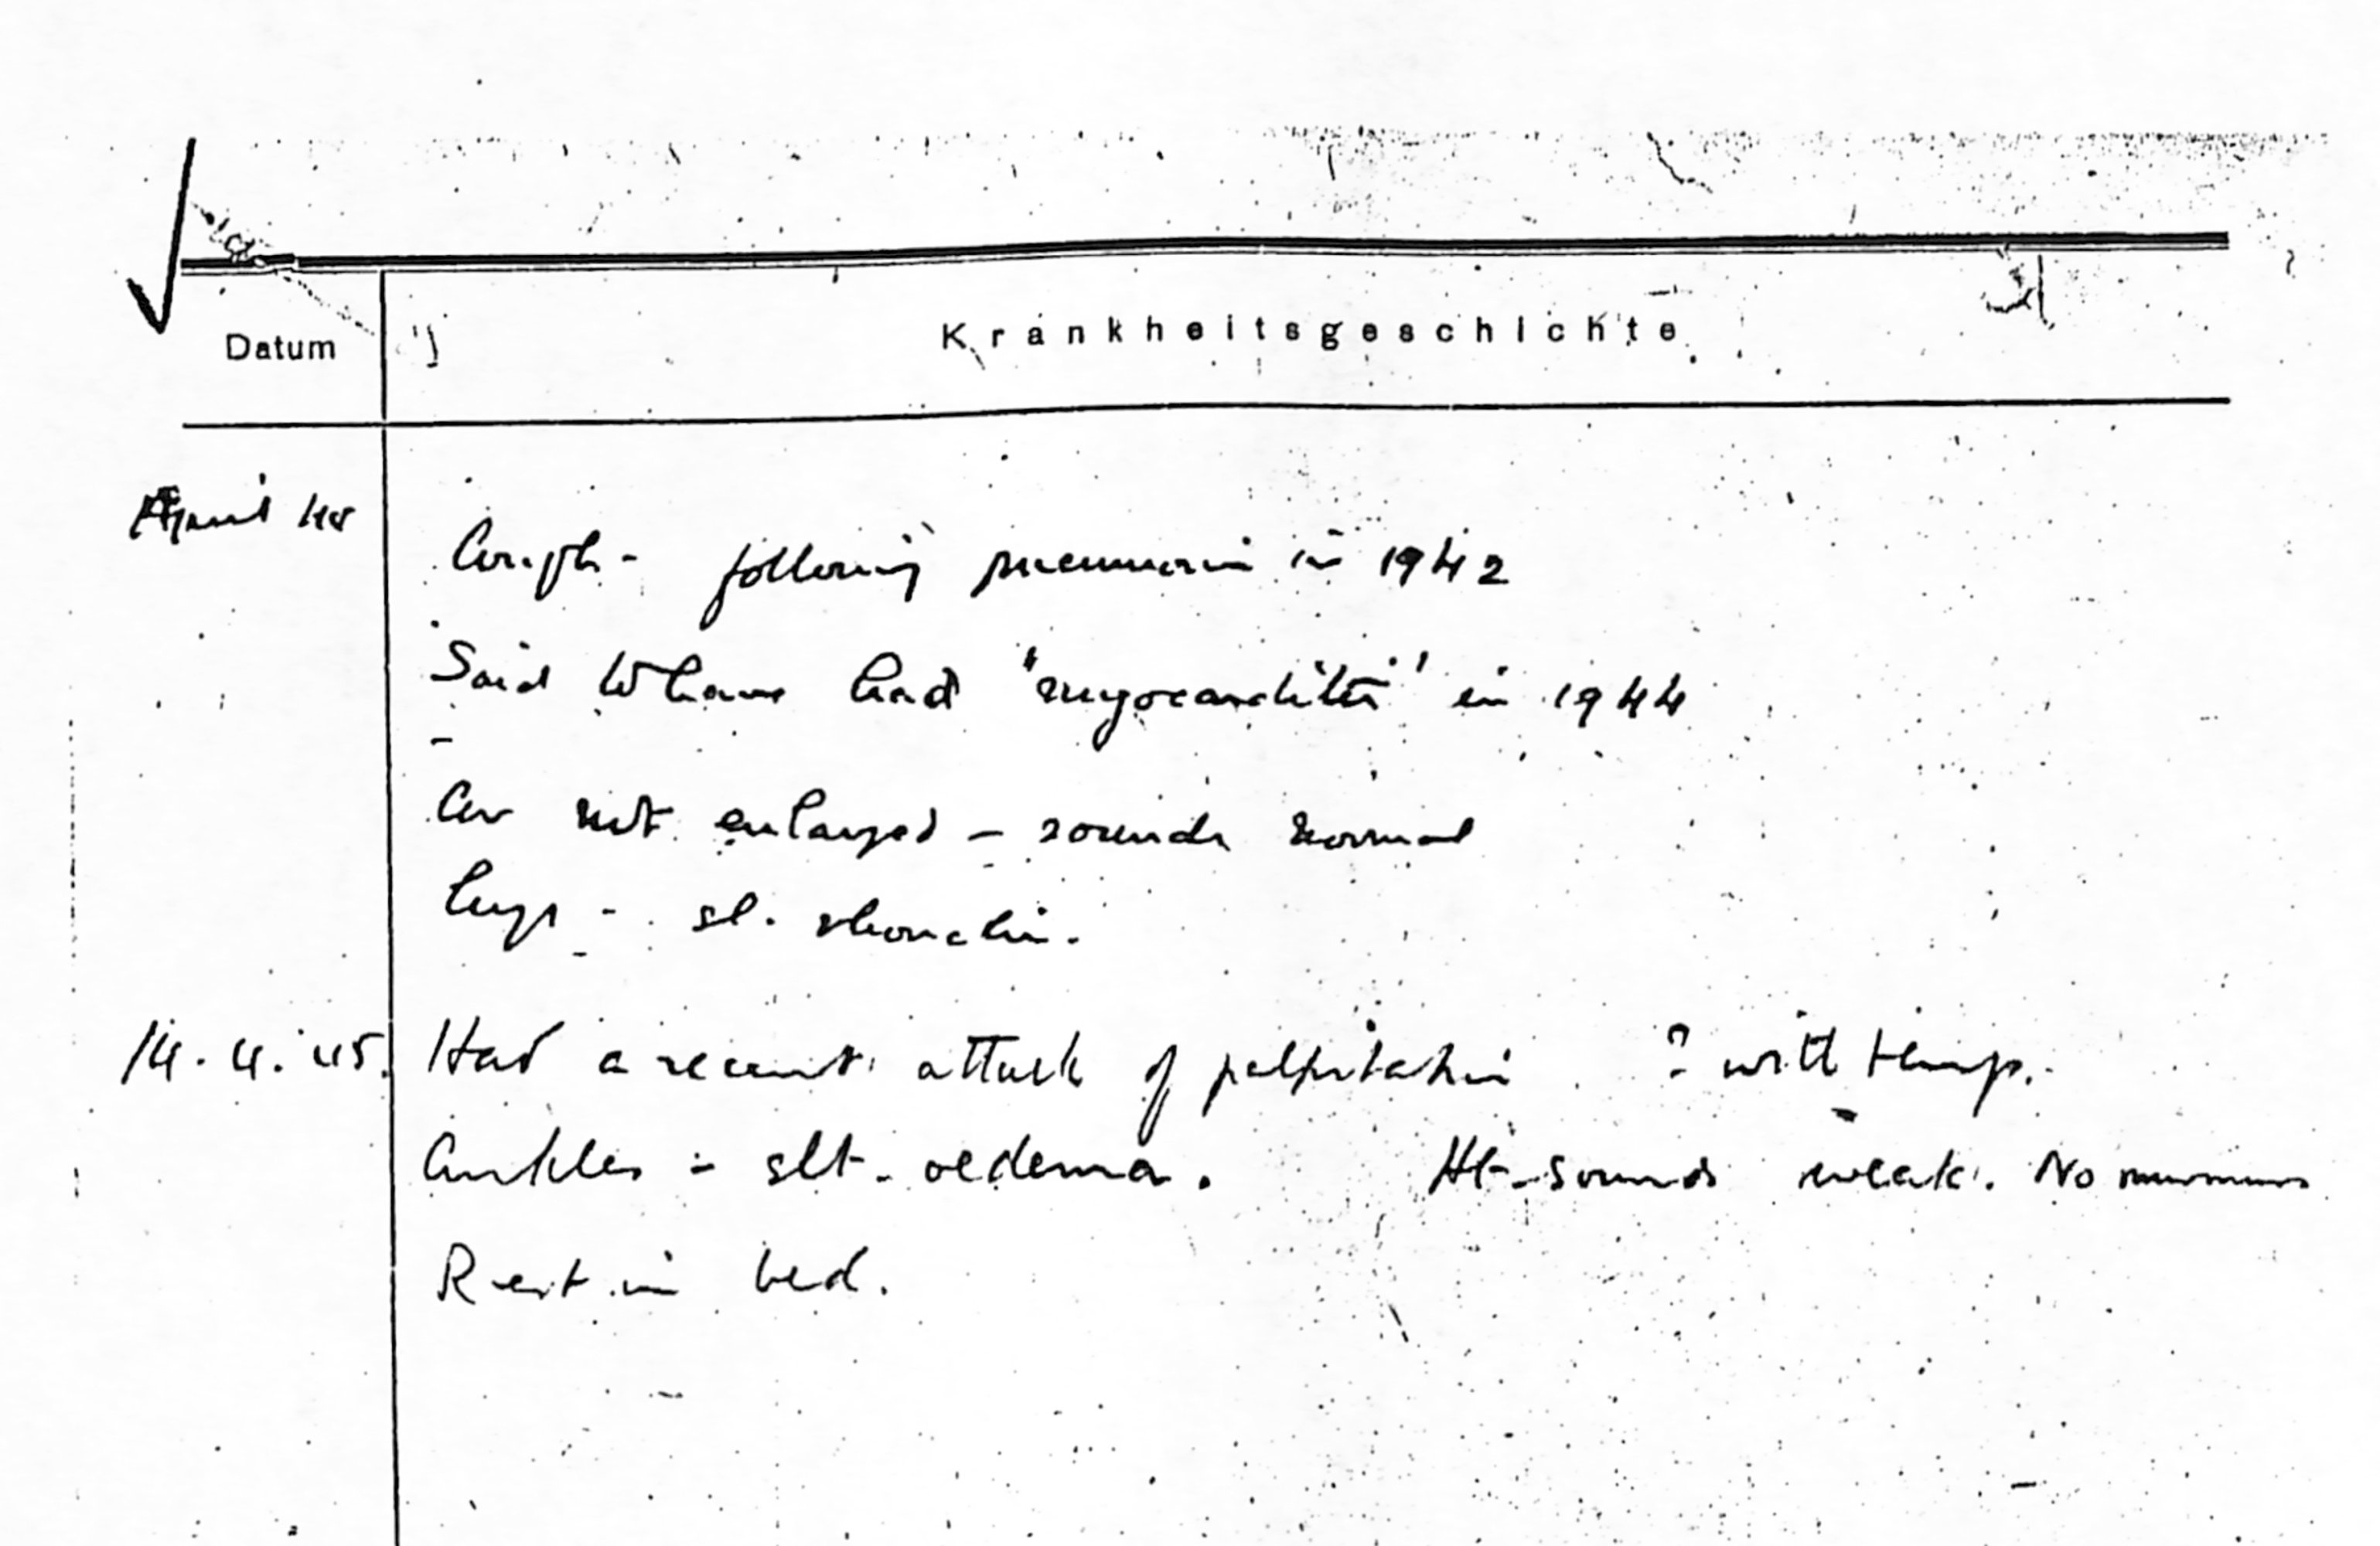 Datum
Krankheitsgeschichte
April 45
Cough - following pneumonia in 1942
Said to have had "myocarditis" in 1944
Cor not enlarged - sounds normal
Lungs - sl. rhonchi.
14.4.45. Had a recent attack of palpitation ? with temp.
Ankles - slt. oedema. Ht. sounds weak. No murmurs
Rest in bed.